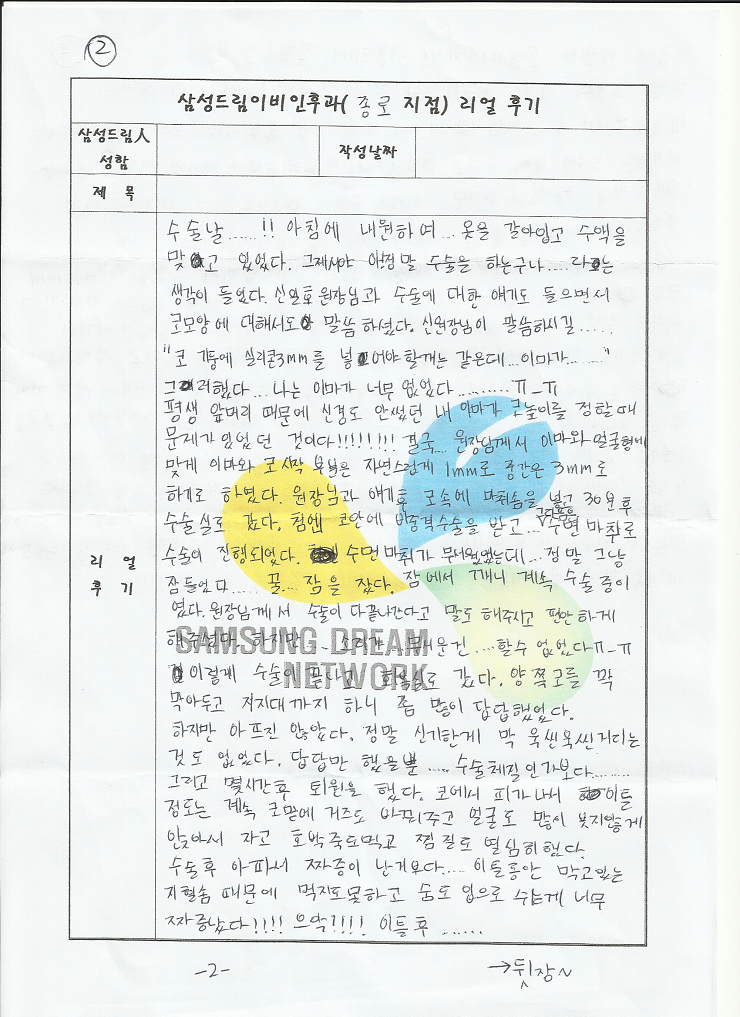 ②
삼성드림이비인후과( 종로 지점) 리얼 후기
삼성드림人
성함
작성날짜
제 목
리 얼
후 기
수술날......!! 아침에 내원하여... 옷을 갈아입고 수액을
맞고 있었다. 그제서야 아 정말 수술을 하는구나.... 라는
생각이 들었다. 신일호 원장님과 수술에 대한 얘기도 들으면서
코모양에 대해서도 말씀 하셨다. 신원장님이 말씀하시길.....
"코 기둥에 실리콘3mm를 넣어야 할꺼는 같은데... 이마가........"
그러했다... 나는 이마가 너무 없었다..........ㅠ_ㅠ
평생 앞머리 때문에 신경도 안썼던 내 이마가 코높이를 정할때
문제가 있었던 것이다!!!!!!!! 결국 원장님께서 이마와 얼굴형에
맞게 이마와 코 시작 부분은 자연스럽게 1mm로 중간은 3mm로
하기로 하였다. 원장님과 얘기후 코속에 마취솜을 넣고 30분후
수술실로 갔다. 첨엔 코안에 비중격수술을 받고... 수면 마취로
수술이 진행되었다. 수면마취가 무서웠었는데... 정말 그냥
잠들었다...... 꿀... 잠을 잤다. 잠에서 깨니 계속 수술중이
였다. 원장님께서 수술이 다끝나간다고 말도 해주시고 편안하게
해주셨다. 하지만.... 소리가 무서운건.... 할수 없었다ㅠ_ㅠ
이렇게 수술이 끝나고 회복실로 갔다. 양쪽코를 꽉
막아두고 지지대까지 하니 좀 많이 답답했었다.
하지만 아프진 않았다. 정말 신기한게 막 욱씬욱씬거리는
것도 없었다. 답답만 했을뿐..... 수술체질인가보다........
그리고 몇시간후 퇴원을 했다. 코에서 피가나서 이틀
정도는 계속 코밑에 거즈도 바꿔주고 얼굴도 많이 붓지않게
앉아서 자고 호박죽도먹고 찜질도 열심히했다.
수술후 아파서 짜증이 난거보다.... 이틀동안 막고있는
지혈솜 때문에 먹지도못하고 숨도 입으로 쉬는게 너무
짜증났다!!!! 으악?!!!! 이틀후......
SAMSUNG DREAM
NETWORK
-2-
→뒷장~